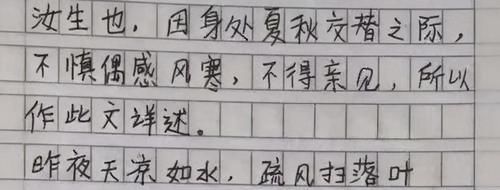 汝生也，因身处夏秋交替之际，
不慎偶感风寒，不得亲见，所以
作此文详述。
昨夜天凉如水，疏风扫落叶